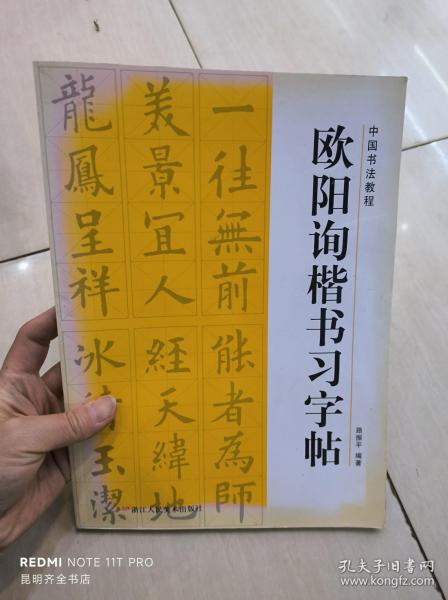 中国书法教程
欧阳询楷书习字帖
路振平 编著
一往無前
能者為師
美景宜人
經天緯地
龍鳳呈祥
冰清玉潔
浙江人民美术出版社
REDMI NOTE 11T PRO
昆明齐全书店
孔夫子旧书网
www.kongfz.com